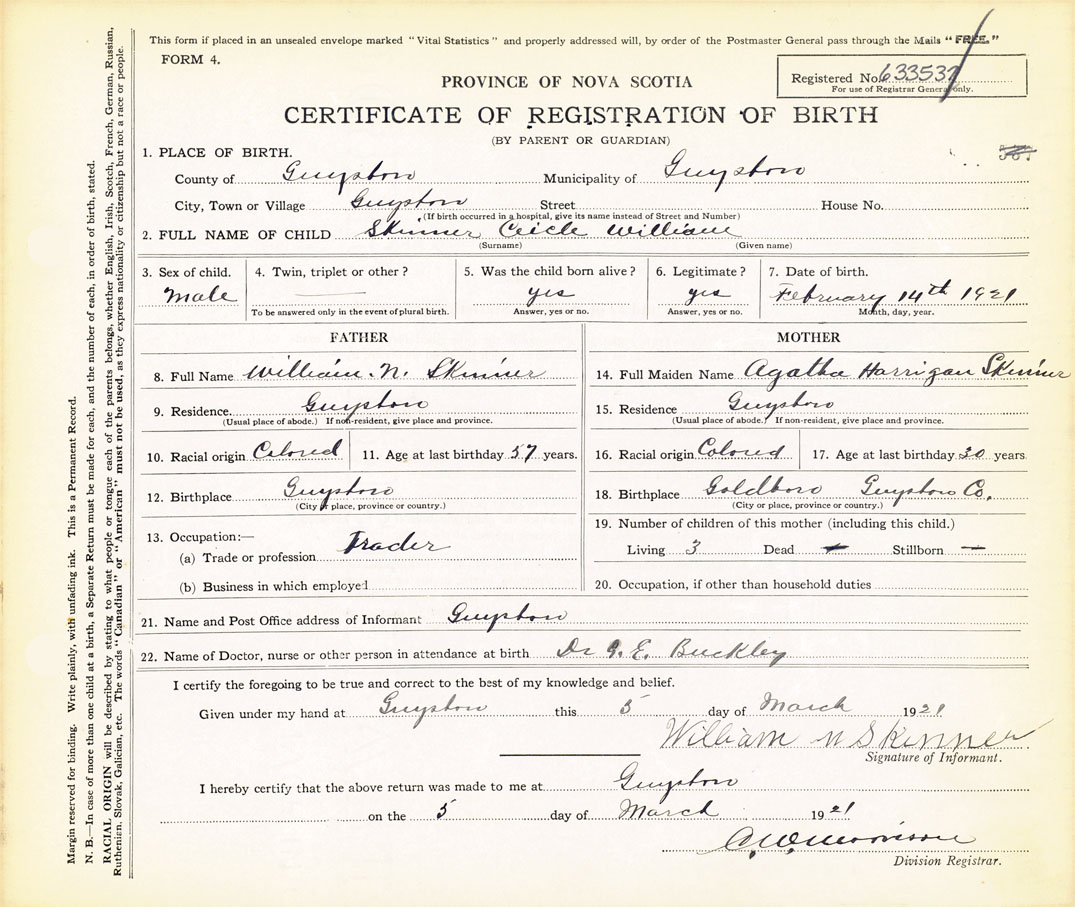 This form if placed in an unsealed envelope marked "Vital Statistics" and properly addressed will, by order of the Postmaster General pass through the Mails "FREE."
FORM 4.
PROVINCE OF NOVA SCOTIA
Registered No. 633537
For use of Registrar General only.
CERTIFICATE OF REGISTRATION OF BIRTH
(BY PARENT OR GUARDIAN)
1. PLACE OF BIRTH.
County of Guysboro Municipality of Guysboro
City, Town or Village Guysboro Street House No.
(If birth occurred in a hospital, give its name instead of Street and Number)
2. FULL NAME OF CHILD Skinner Ceicle William
(Surname) (Given name)
3. Sex of child. 4. Twin, triplet or other? 5. Was the child born alive? 6. Legitimate? 7. Date of birth.
Male — yes yes February 14th 1921
To be answered only in the event of plural birth. Answer, yes or no. Answer, yes or no. Month, day, year.
FATHER
8. Full Name William. N. Skinner
9. Residence. Guysboro
(Usual place of abode.) If non-resident, give place and province.
10. Racial origin Colored 11. Age at last birthday 57 years.
12. Birthplace Guysboro
(City or place, province or country.)
13. Occupation:—
(a) Trade or profession Trader
(b) Business in which employed
MOTHER
14. Full Maiden Name Agatha Harrigan Skinner
15. Residence Guysboro
(Usual place of abode.) If non-resident, give place and province.
16. Racial origin Colored 17. Age at last birthday 30 years.
18. Birthplace Goldboro Guysboro Co.
(City or place, province or country.)
19. Number of children of this mother (including this child.)
Living 3 Dead — Stillborn —
20. Occupation, if other than household duties
21. Name and Post Office address of Informant Guysboro
22. Name of Doctor, nurse or other person in attendance at birth Dr G. E. Buckley
I certify the foregoing to be true and correct to the best of my knowledge and belief.
Given under my hand at Guysboro this 5 day of March 1921
William N Skinner
Signature of Informant.
I hereby certify that the above return was made to me at Guysboro
on the 5 day of March 1921
Division Registrar.
Margin reserved for binding. Write plainly, with unfading ink. This is a Permanent Record.
N. B.—In case of more than one child at a birth, a Separate Return must be made for each, and the number of each, in order of birth, stated.
RACIAL ORIGIN will be described by stating to what people or tongue each of the parents belongs, whether English, Irish, Scotch, French, German, Russian,
Ruthenian, Slovak, Galician, etc. The words "Canadian" or "American" must not be used, as they express nationality or citizenship but not a race or people.